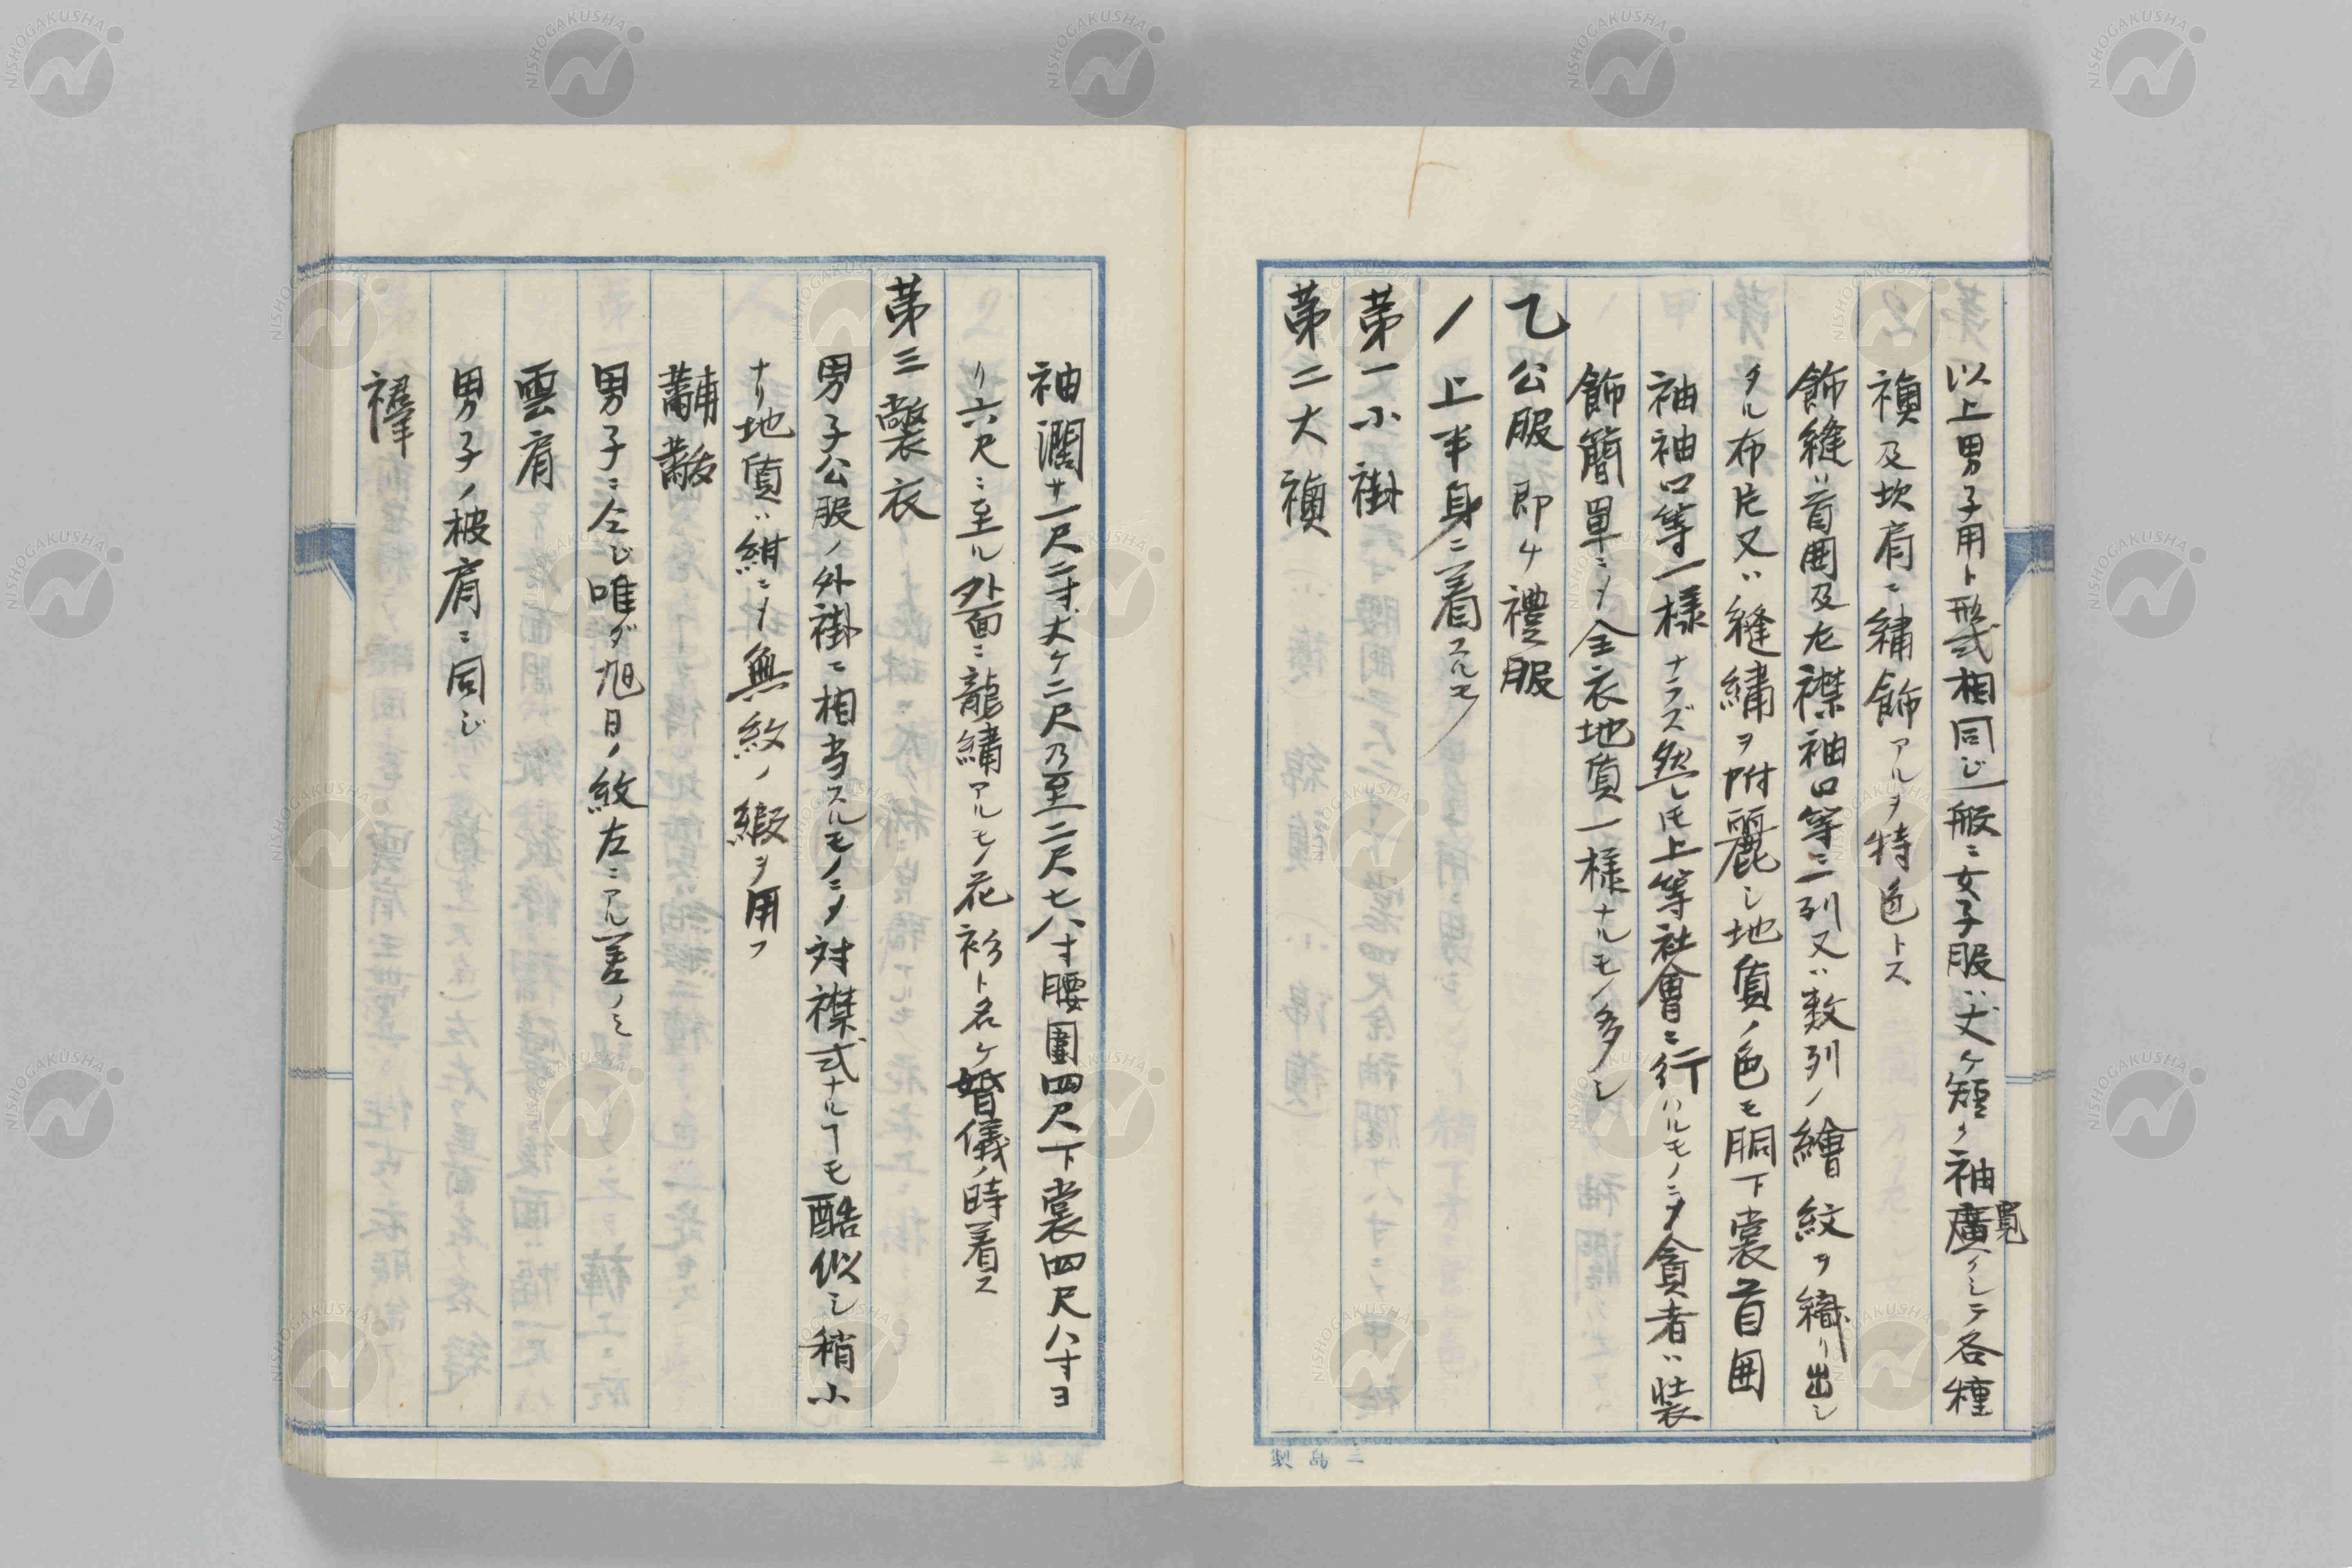 以上男子用ト形式相同ジ一般ニ女子服ハ丈ケ短ク袖廣クシテ各種
寛
襖及坎肩ニ繡飾アルヲ特色トス
飾縫ハ首囲及左襟袖口等ニ一列又ハ数列ノ繪紋ヲ織リ出シ
タル布片又ハ縫繡ヲ附麗シ地質ノ色モ胴下裳首囲
袖袖口等一様ナラズ然レ𪜈上等社會ニ行ハルモノニメ貧者ハ装
飾簡單ニメ全衣地質一様ナルモノ多シ
乙 公服 即ケ禮服
1 上半身ニ着スルモノ
第一 小褂
第二 大襖
袖濶サ一尺二寸丈ケ二尺乃至二尺七八寸腰圍四尺下裳四尺八寸ヨ
リ六尺ニ至ル外面ニ龍繡アルモノ花衫ト名ケ婚儀ノ時着ス
第三 氅衣
男子公服ノ外褂ニ相当スルモノニメ対襟式ナルヿモ酷似シ稍小
ナリ地質ハ紺ニメ無紋ノ緞ヲ用フ
黼黻
男子ニ仝ジ唯ダ旭日ノ紋左ニアル差ノミ
雲肩
男子ノ被肩ニ同ジ
三島製
NISHOGAKUSHA